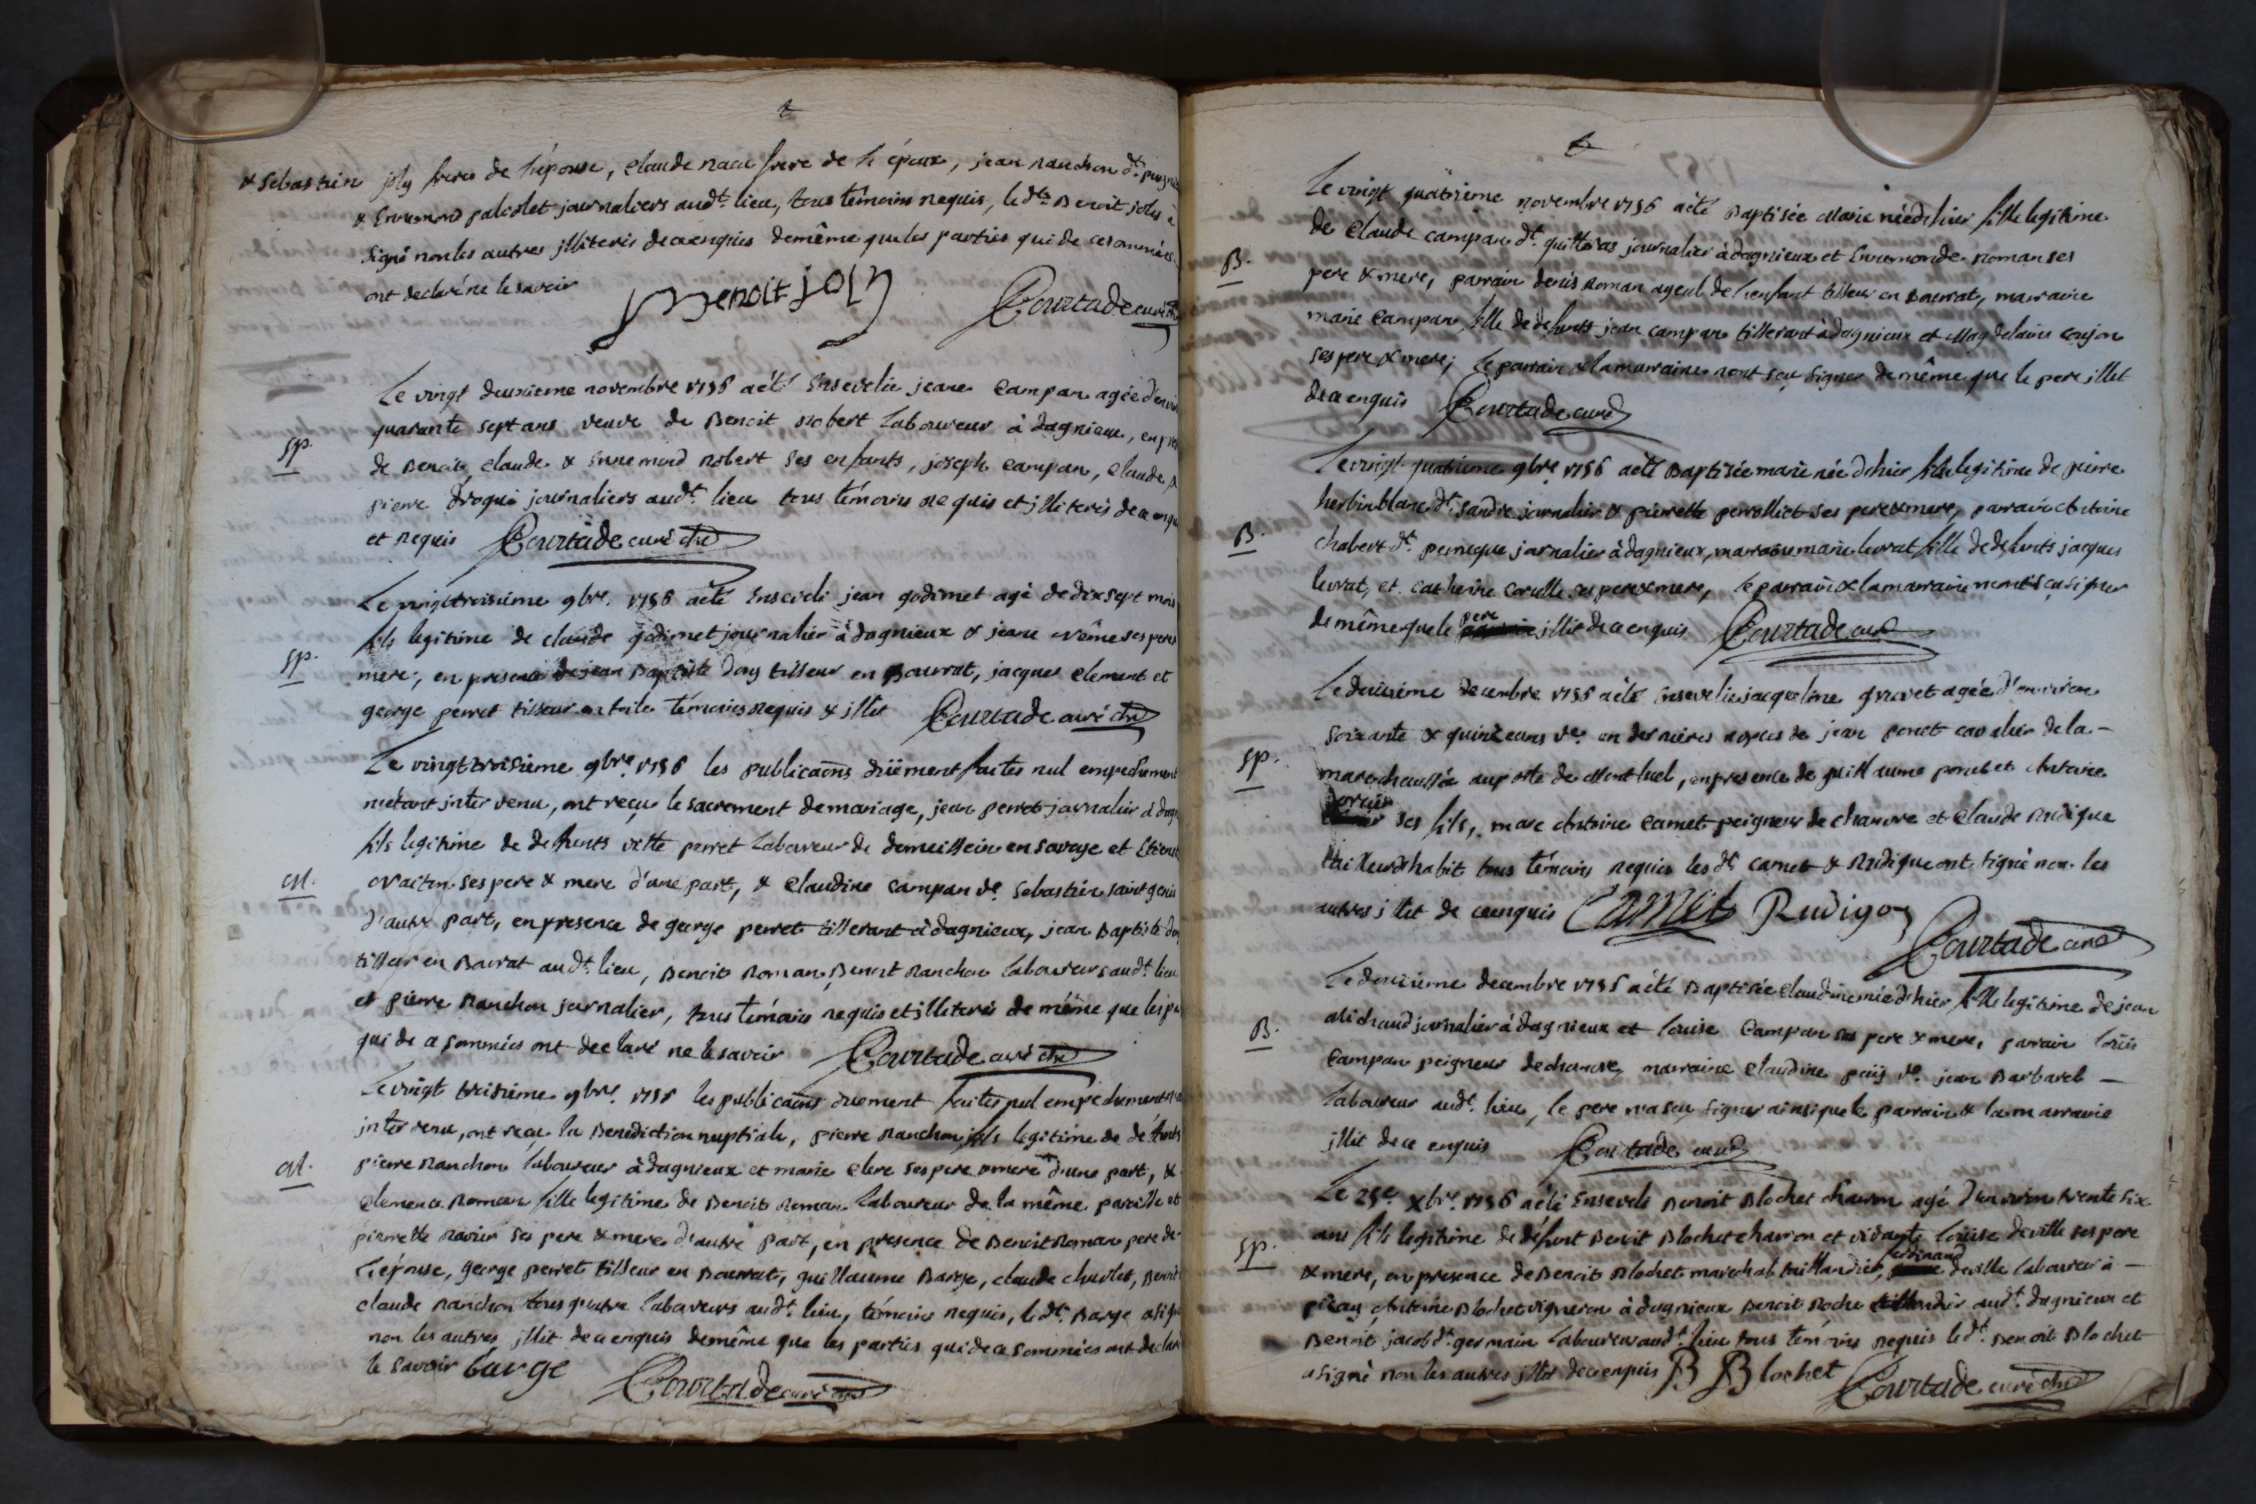 & Sebastien joly freres de l'épouse, Claude nacu frere de l'épeux, jean Ranchon dt.
& Ennemond paliolet journaliers audt. lieu, tous témoins requis, le dt. Benoit joly à
signé non les autres illiterés de ce enquis de même que les parties qui de ce sommées
ont declaré ne le savoir
Benoit joly
Courtade curé
Sp.
Le vingt deuxieme novembre 1756 a été Ensevelie jeane Campan agée d'environ
quarante sept ans veuve de Benoit Robert laboureur à dagnieux, en
de Benoit, Claude & Ennemond Robert ses enfants, joseph Campan, Claude &
pierre Droqui journaliers audt. lieu tous témoins requis et illiterés de ce enquis
et requis Courtade curé
Sp.
Le vingt troisieme 9bre. 1756 a été Enseveli jean godimet agé de dix sept mois
fils legitime de claude godimet journalier à dagnieux & jeane ses pere
mere, en presence de jean Baptiste Dony tisseur en Bourrat, jacques Clement et
george perret tisseur en toile témoins requis & illit Courtade curé
M.
Le vingt troisieme 9bre. 1756 les publicaons düëment faites nul empechement
n'étant intervenu, ont reçu le sacrement de mariage, jean perret journalier à
fils legitime de defunts vitte perret laboureur de demeillein en savoye et
ses pere & mere d'une part, & Claudine Campan ve. Sebastien saint genis
d'autre part, en presence de george perret tisserant à dagnieux, jean Baptiste
tisseur en Bourat audt. lieu, Benoit Roman, Benoit Ranchon laboureurs audt. lieu
et pierre Ranchon journalier, tous témoins requis et illiterés de même que les
qui de ce sommées ont declaré ne le savoir Courtade curé
M.
Le vingt troisieme 9bre. 1756 les publicaons duement faites nul empechement
intervenu, ont reçu la Benediction nuptiale, pierre Ranchon fils legitime de defunts
pierre Ranchon laboureur à dagnieux et marie Clere ses pere & mere d'une part, &
Clemence Roman fille legitime de Benoit Roman laboureur de la même paroisse et
pierrette ravier ses pere & mere d'autre part, en presence de Benoit Roman pere de
l'épouse, george perret tisseur en Bourrat, guillaume Barge, claude charles, Benoit
claude Ranchon tous quatre laboureurs audt. lieu, témoins requis, le dt. Barge a
non les autres illit de ce enquis de même que les parties qui de ce sommées ont
le savoir barge
Courtade curé
B.
Le vingt quatrieme novembre 1756 a été Baptisée Marie née d'hier fille legitime
de Claude campan dt. journalier à dagnieux et Ennemonde Roman ses
pere & mere, parrain denis Roman ayeul de l'enfant tisseur en Bourrat, marraine
marie Campan fille de defunts jean campan tisserant à dagnieux et Magdelaine
ses pere & mere; le parrain & la marraine n'ont sçu signer de même que le pere illet
de ce enquis Courtade curé
B.
Le vingt quatrieme 9bre. 1756 a été Baptisée marie née d'hier fille legitime de pierre
blanc dt. journalier & pierrette perrolliet ses pere & mere, parrain Antoine
chabert dt. perruque jornalier à dagnieux, marraine marie levrat fille de defunts jacques
levrat, et Catherine ses pere & mere, le parrain & la marraine n'ont sçu signer
de même que le pere illit de ce enquis Courtade curé
Sp.
Le deuxieme decembre 1756 a été Ensevelie jacqueline agée d'environ
soixante & quinze ans ve. en dernieres nopces de jean ponet cavalier de la-
marechaussée au poste de Montluel, en presence de guillaume ponet et Antoine
ses fils, marc Antoine Camet peigneur de chanvre et Claude Rudique
tailleur d'habit tous témoins requis les dt. camet & Rudique ont signé non les
autres illet de ce enquis Camet Rudigoz
Courtade curé
B.
Le deuxieme decembre 1756 a été Baptisée Claudine née d'hier fille legitime de jean
Michaud journalier à dagnieux et louise Campan ses pere & mere, parrain loüis
Campan peigneur de chanvre, marraine Claudine ve. jean Barbaret -
laboureur audt. lieu, le pere n'a sçu signer ainsi que le parrain & la marraine
illit de ce enquis Courtade curé
Sp.
Le 25e. Xbre. 1756 a été Enseveli Benoit Blochet charon agé d'environ trente six
ans fils legitime de défunt Benoit Blochet charron et vivante loüise deville ses pere
& mere, en presence de Benoit Blochet marechal taillandier, ferdinand deville laboureur à -
pizay, Antoine Blochet vigneron à dagnieux Benoit Roche audt. dagnieux et
Benoit jacob dt. germain laboureur audt. lieu tous témoins requis le dt. Benoit Blochet
a signé non les autres illit de ce enquis B Blochet Courtade curé